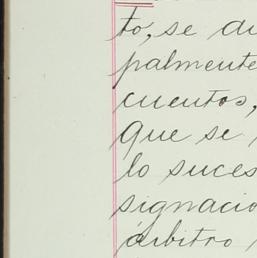 to, se du
palmente
cuentos,
que se
lo suces
signacio
árbitro